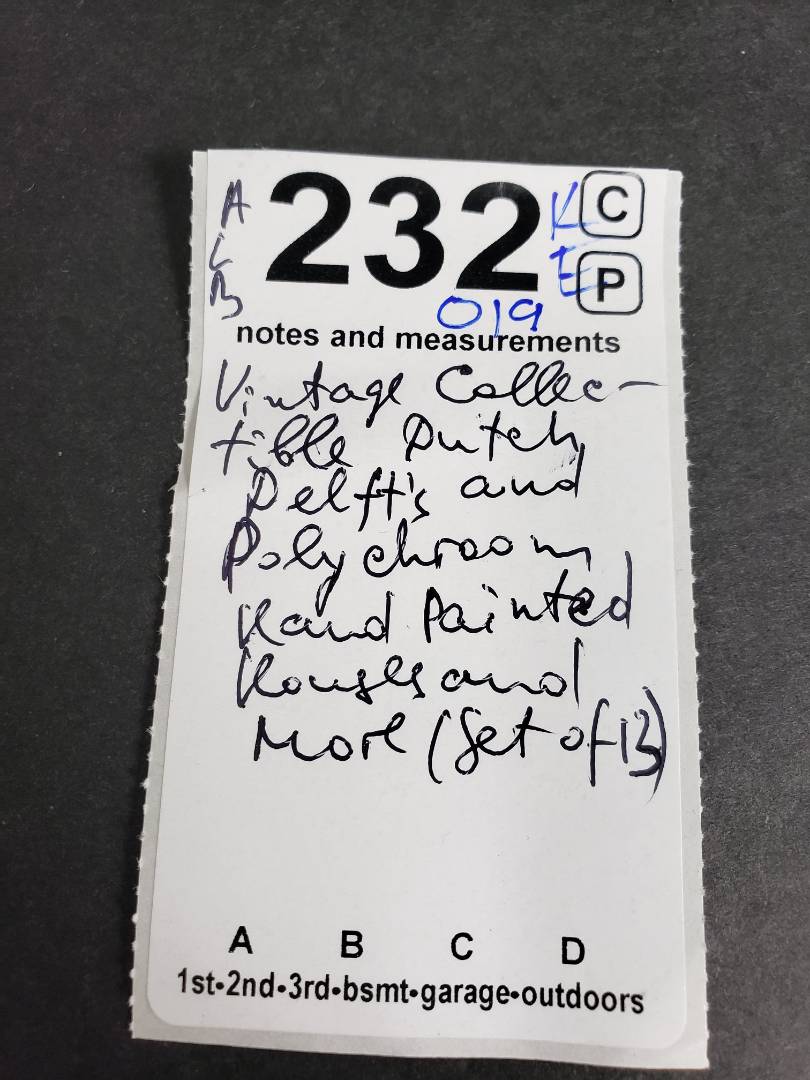 A 232 K C
L E P
B 019
notes and measurements
Vintage Collec-
tible Dutch
Delft's and
Polychroom
Hand Painted
Houses and
More (Set of 13)
A B C D
1st•2nd•3rd•bsmt•garage•outdoors